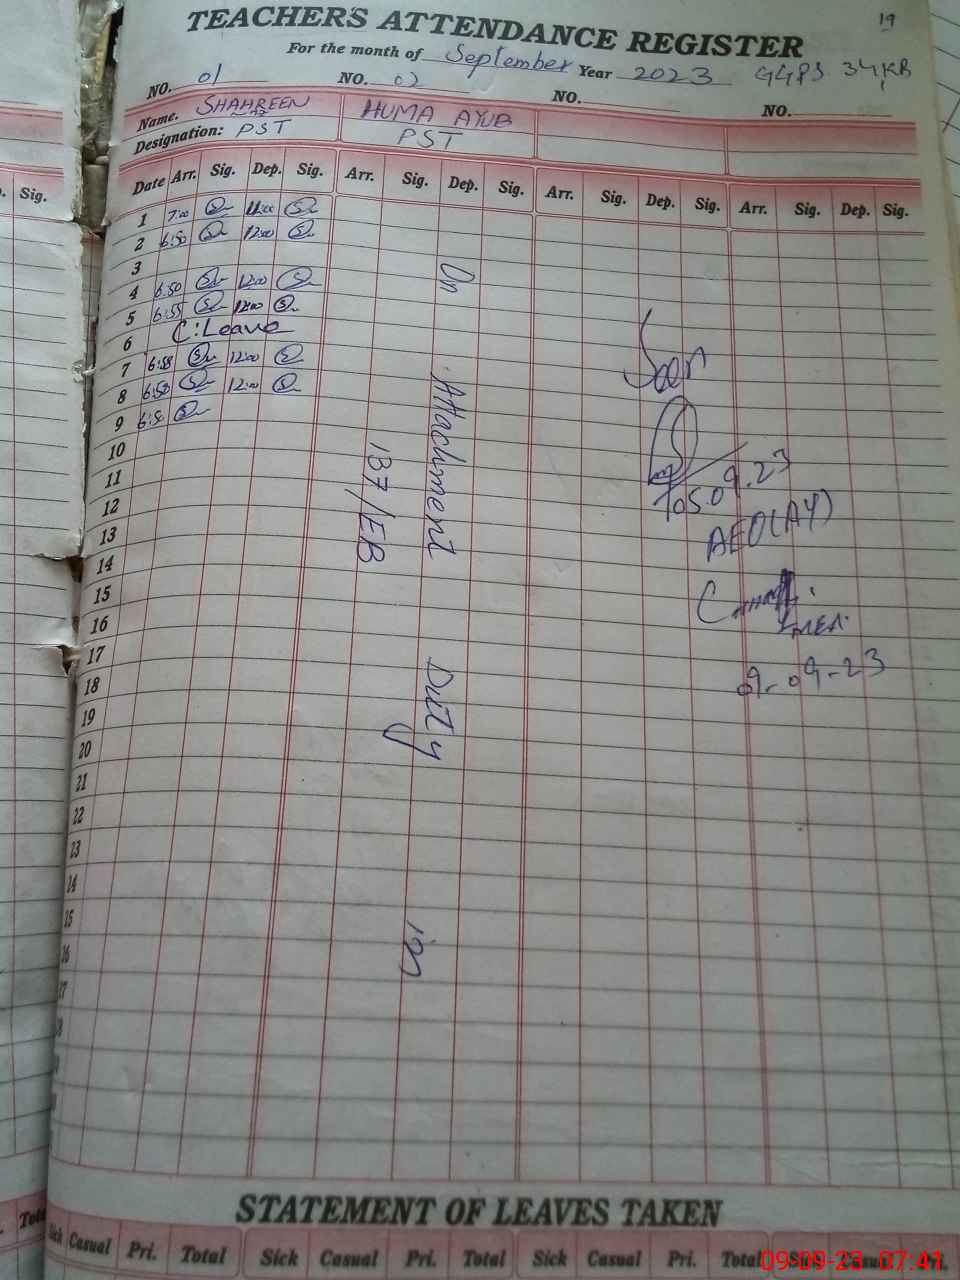 19
TEACHER'S ATTENDANCE REGISTER
For the month of September Year 2023 GGPS 34KB
NO. 01 NO. 02 NO. NO.
Name. SHAHREEN HUMA AYUB
Designation: PST PST
Sig. Date Arr. Sig. Dep. Sig. Arr. Sig. Dep. Sig. Arr. Sig. Dep. Sig. Arr. Sig. Dep. Sig.
1 7:00
2 6:50 12:00
3
4 6:50 12:00
5 6:55 12:00
6 C:Leave
7 6:58 12:00
8 6:50 12:00
9 6:50
10
11
12
13
14
15
16
17
18
19
20
21
22
23
24
25
26
27
On Attachment Duty in
137/EB
Seen
05.09.23
AEO(AY)
MEA.
09-09-23
STATEMENT OF LEAVES TAKEN
Sick Casual Pri. Total Sick Casual Pri. Total Sick Casual Pri. Total Sick Casual Pri.
09-09-23 07:41